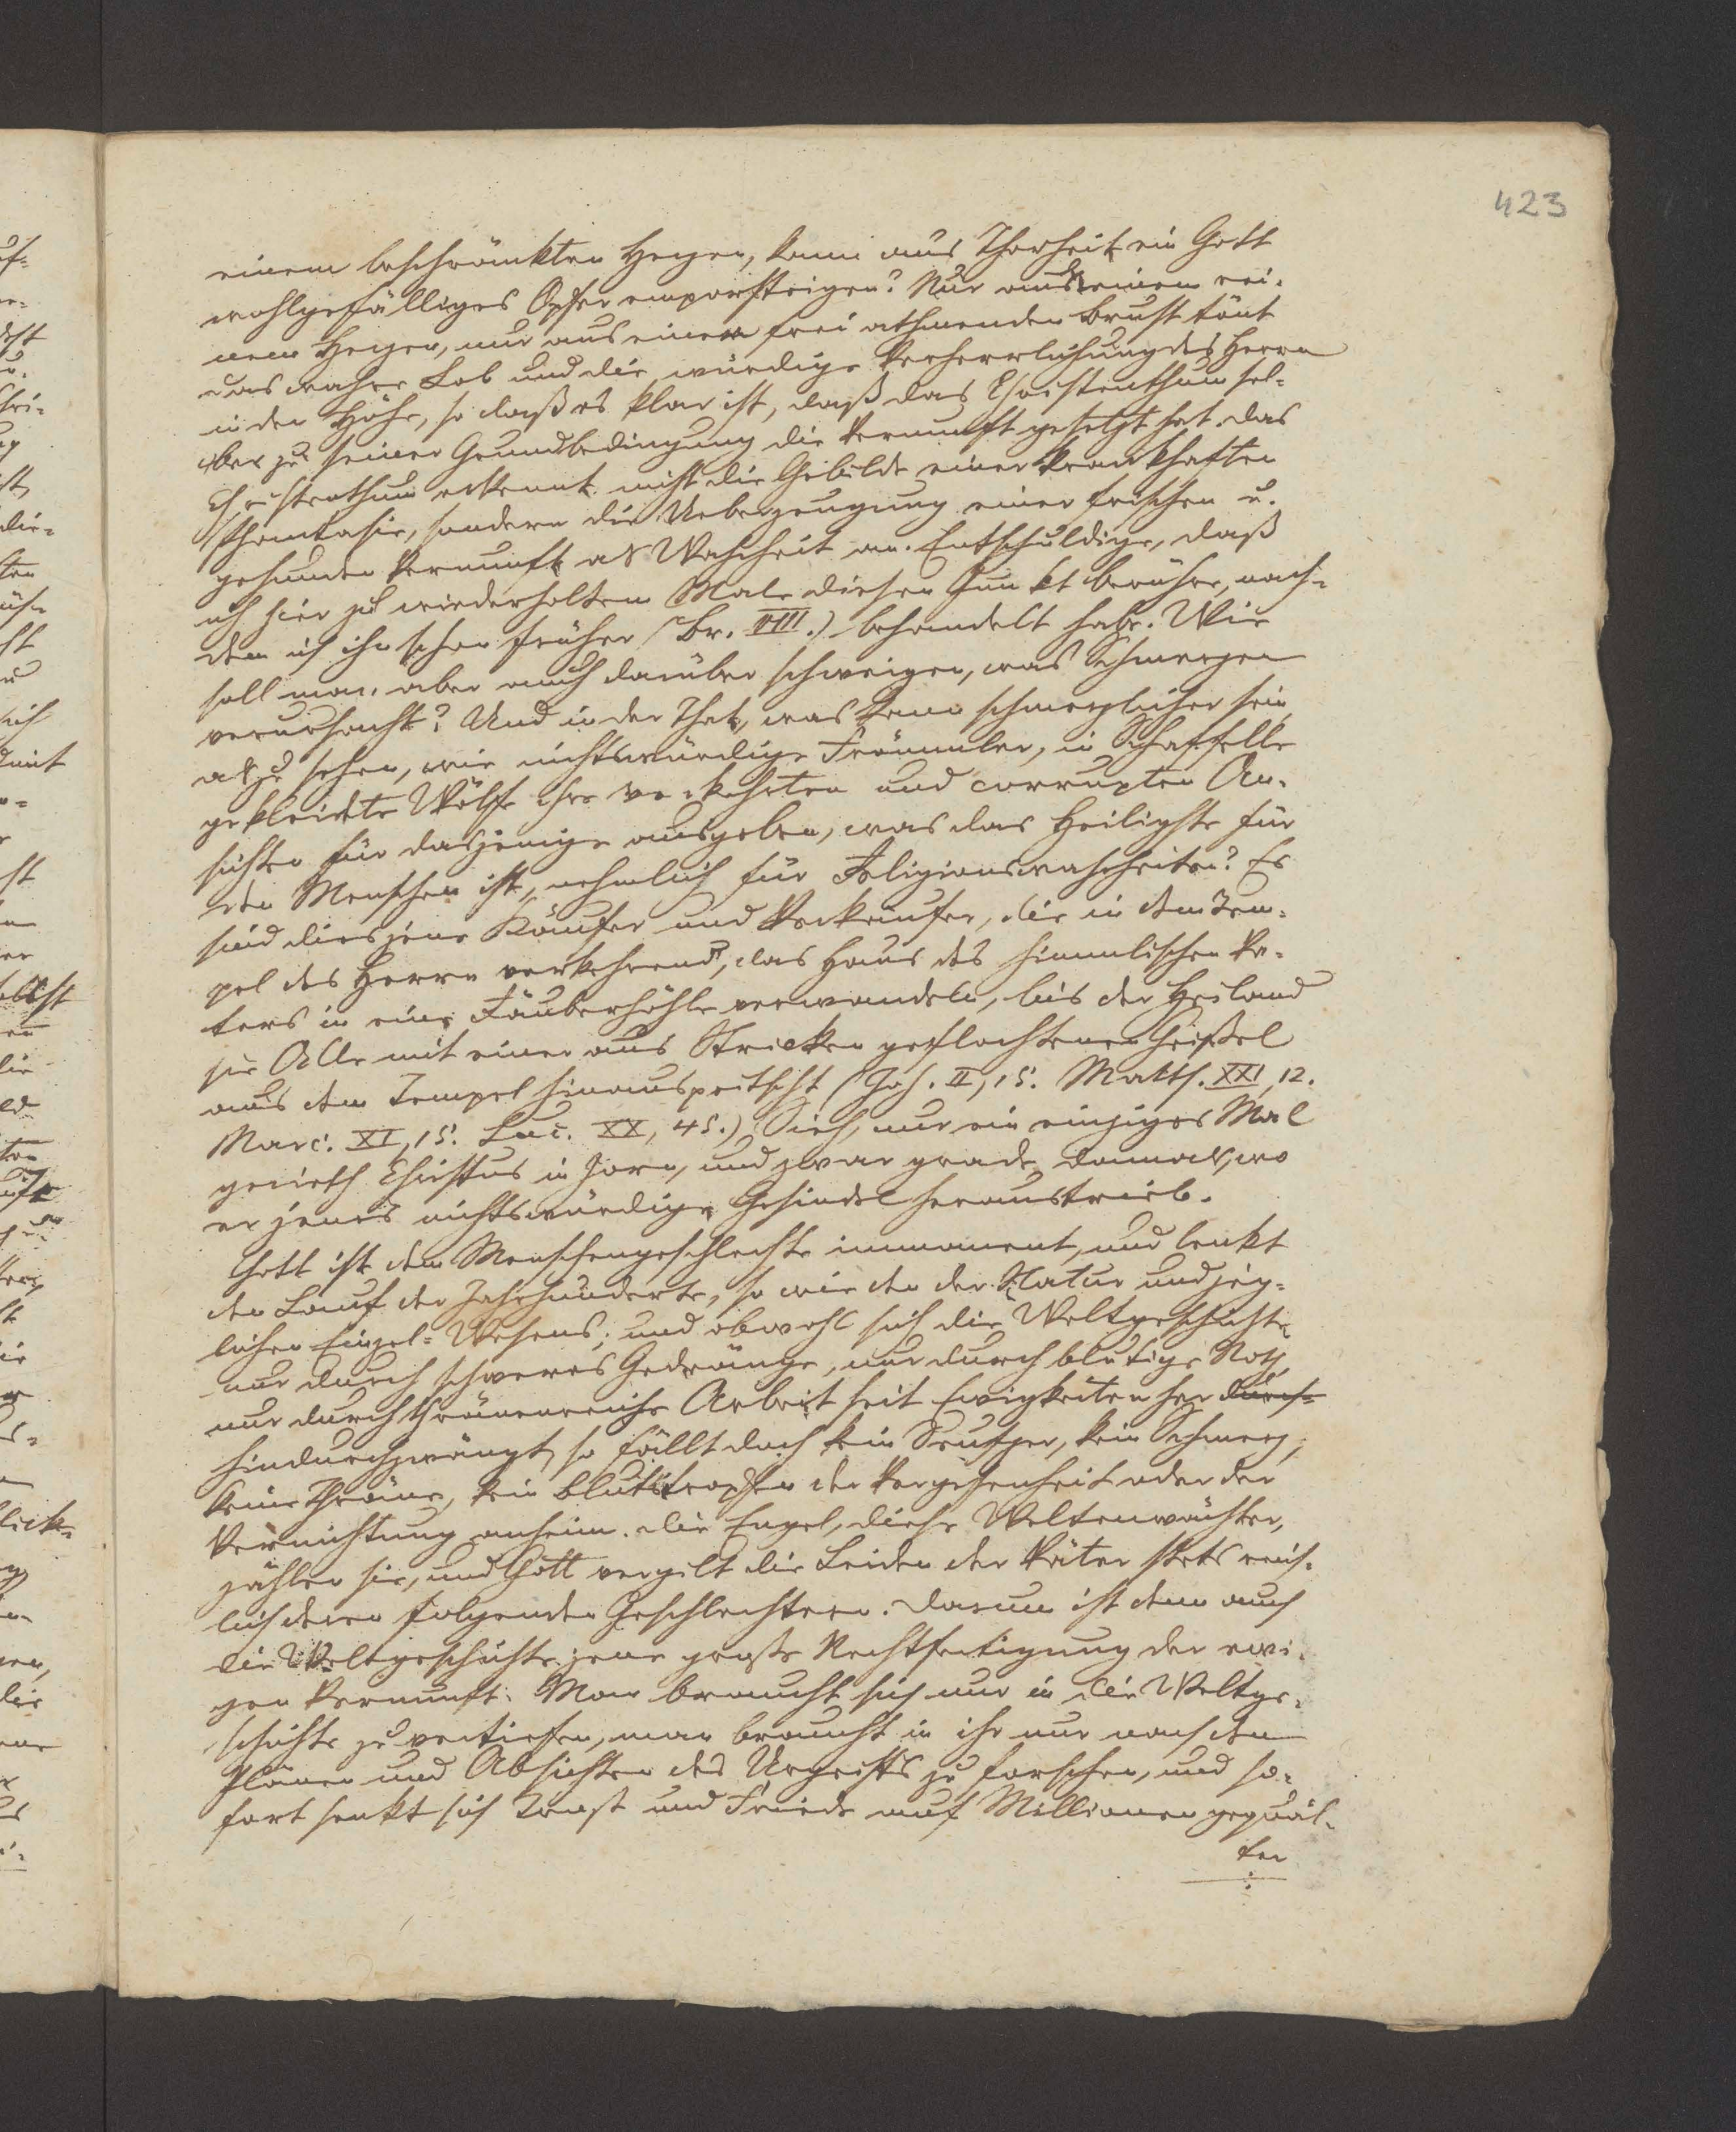 423
einem beschränkten Herzen, kann aus Thorheit ein Gott
wohlgefälliges Opfer emporsteigen? Nur aus einem rei-
nem Herzen, nur aus einer frei athmenden Brust tönt
das wahre Lob und die würdige Verherrlichung des Herrn
in der Höhe, so daß es klar ist, daß das Christenthum sel-
ber zu seiner Grundbedingung die Vernunft gesetzt hat. Das
Christenthum erkennt nicht die Gebilde einer krankhaften
Phantasie, sondern die Ueberzeugung einer frischen u.
gesunden Vernunft als Wahrheit an. Entschuldige, daß
ich hier zu wiederholten Male diesen Punkt berühre, nach-
dem ich ihn schon früher (Br. VIII.) behandelt habe. Wie
soll man aber auch darüber schweigen, was Schmerzen
verursacht? Und in der That, was kann schmerzlicher sein
als zu sehen, wie nichtswürdige Frömmler, in Schaffelle
gekleidete Wölfe ihre verkehrten und corrupten An-
sichten für dasjenige ausgeben, was das Heiligste für
den Menschen ist, nehmlich für Religionswahrheiten? Es
sind dies jene Käufer und Verkäufer, die in dem Tem-
pel des Herrn verkehrend, das Haus des himmlischen Va-
ters in eine Räuberhöhle verwandeln, bis der Heiland
sie Alle mit einer aus Stricken geflochtenen Geißel
aus dem Tempel hinauspeitscht (Joh. II, 15. Matth. XXI, 12.
Marc. XI, 15. Luc. XX, 45.) Sieh, nur ein einziges Mal
gerieth Christus in Zorn, und zwar grade damals, wo
er jenes nichtswürdige Gesindel heraustrieb.
Gott ist dem Menschengeschlechte immanent, und lenkt
den Lauf der Jahrhunderte, so wie den der Natur und jeg-
lichen Einzel-Wesens; und obwohl sich die Weltgeschichte
nur durch schweres Gedränge, nur durch blutige Noth,
nur durch thränenreiche Arbeit seit Ewigkeiten her durch-
hindurchzwängt, so fällt doch kein Seufzer, kein Schmerz,
keine Thräne, kein Blutstropfen der Vergessenheit oder der
Vernichtung anheim. Die Engel, diese Weltenwächter,
zählen sie, und Gott vergilt die Leiden der Väter stets reich-
lich deren folgenden Geschlechtern. Darum ist denn auch
die Weltgeschichte jene große Rechtfertigung der ewi-
gen Vernunft. Man braucht sich nur in die Weltge-
schichte zu vertiefen, man braucht in ihr nur nach den
Plänen und Absichten des Urgeistes zu forschen, und so-
fort senkt sich Trost und Friede auf Millionen gequäl-
ter